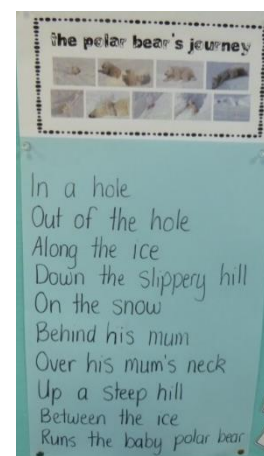 the polar bear's journey
In a hole
Out of the hole
Along the ice
Down the slippery hill
On the snow
Behind his mum
Over his mum's neck
Up a steep hill
Between the ice
Runs the baby polar bear